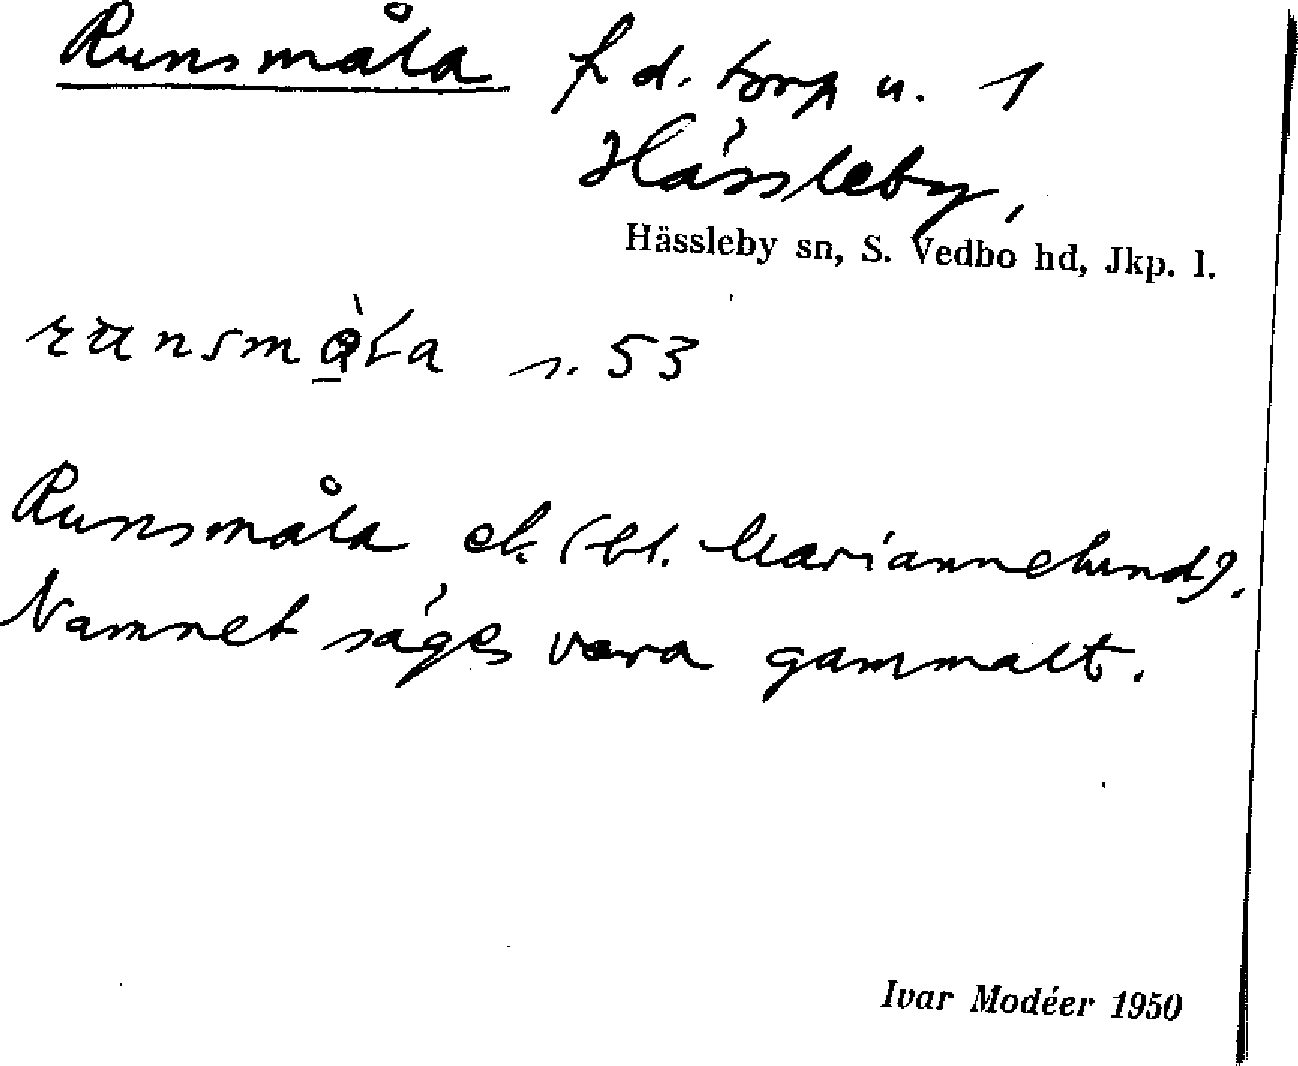 Runsmåla f. d. torp u. 1
Hässleby,
Hässleby sn, S. Vedbo hd, Jkp. l.
s. 53
Runsmåla ek. (bl. Mariannelund).
Namnet säges vara gammalt.
Ivar Modéer 1950